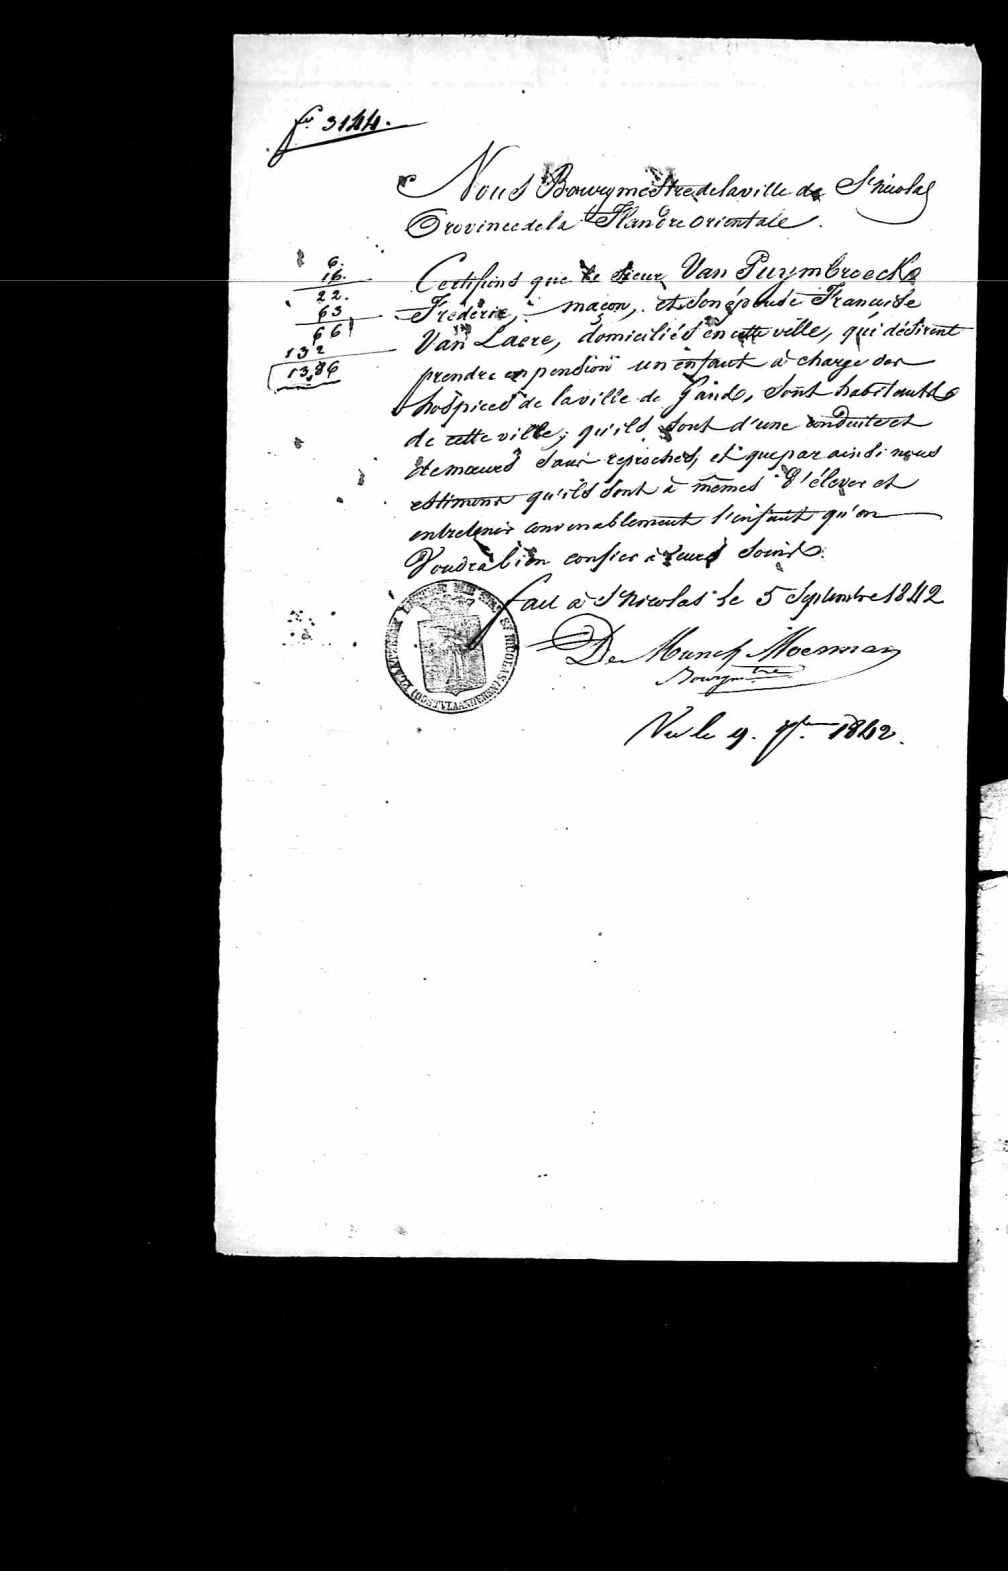 fo 3144.
Nous Bourgmestre de la ville de St nicolas
Province de la Flandre orientale.
6.
16.
22.
63
66
132
13,86
Certifions que le sieur Van Puymbroeck
Frédéric, maçon, et son épouse Francoise
Van Laere, domiciliés en cette ville, qui désirent
prendre en pension un enfant à charge des
hospices de la ville de Gand, sont habitants
de cette ville; qu'ils sont d'une conduite et
de mœurs sans reproches, et que par ainsi nous
estimons qu'ils sont à mêmes d'élever et
entretenir convenablement l'enfant qu'on
Voudra bien confier à leurs soins.
fait à St Nicolas le 5 Septembre 1842
De Munck Moerman
Bourgmtre
ST NICOLAS (OOST VLAANDEREN)
Vu le 9. 7bre 1842.